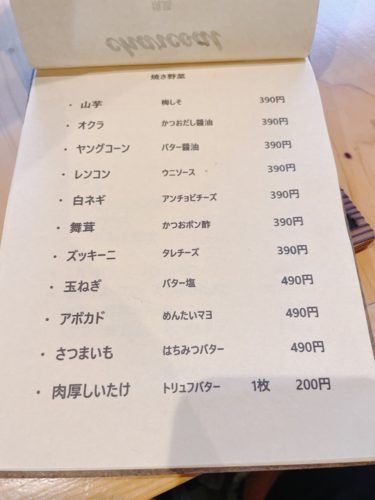 charcoal
焼き野菜
・ 山芋 梅しそ 390円
・ オクラ かつおだし醤油 390円
・ ヤングコーン バター醤油 390円
・ レンコン ウニソース 390円
・ 白ネギ アンチョビチーズ 390円
・ 舞茸 かつおポン酢 390円
・ ズッキーニ タレチーズ 390円
・ 玉ねぎ バター塩 490円
・ アボカド めんたいマヨ 490円
・ さつまいも はちみつバター 490円
・ 肉厚しいたけ トリュフバター 1枚 200円